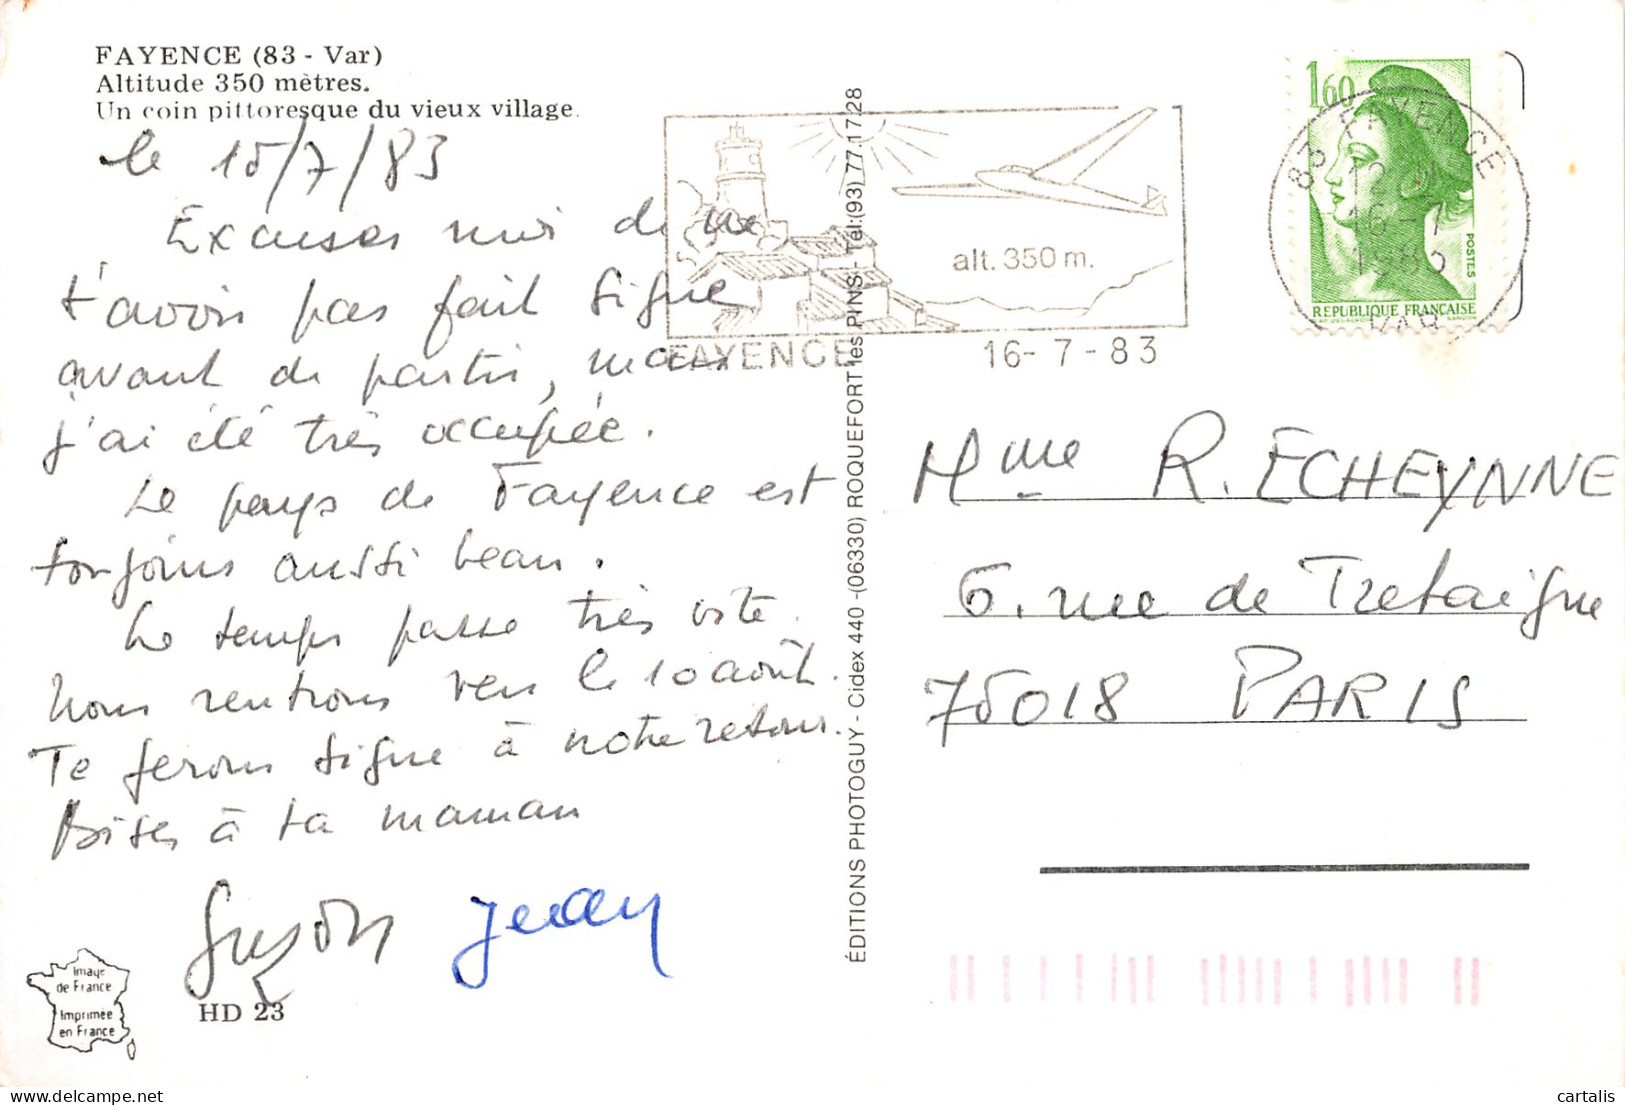 FAYENCE (83 - Var)
Altitude 350 mètres.
Un coin pittoresque du vieux village.
le 15/7/83
Excuses moi de ne
t'avoir pas fait signe
avant de partir, mais
j'ai été très occupée.
Le pays de Fayence est
toujours aussi beau.
Le temps passe très vite.
Nous rentrons vers le 10 août.
Te ferons signe à notre retour.
Bises à ta maman
Suzon Jean
Image
de France
Imprimée
en France
HD 23
ÉDITIONS PHOTOGUY - Cidex 440 -(06330) ROQUEFORT les PINS - Tél:(93) 77.17.28
alt. 350 m.
FAYENCE 16-7-83
1,60
POSTES
REPUBLIQUE FRANÇAISE
83 FAYENCE
16-7
1983
VAR
Mme R. ECHEYNNE
6. rue de Tretaigne
75018 PARIS
cartalis